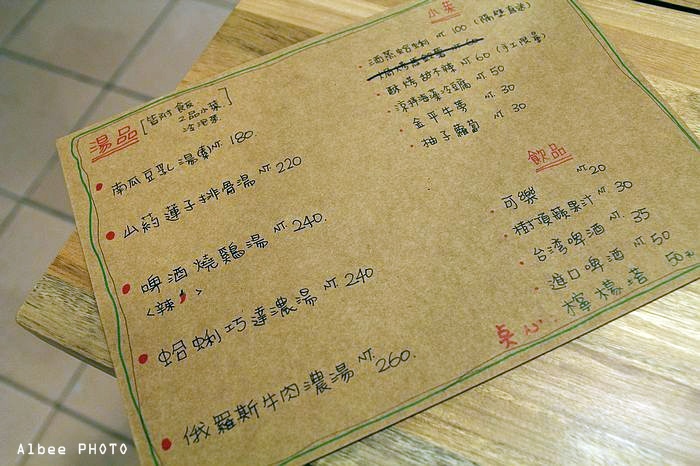 湯品
[皆附 飯
2品小菜
冷泡茶]
南瓜豆乳湯 NT. 180.
山葯蓮子排骨湯 NT 220
啤酒燒鷄湯 NT 240.
<辣>
蛤蜊巧達濃湯 NT. 240
俄羅斯牛肉濃湯 NT. 260.
小菜
酒蒸蛤蜊 NT 100 (隔壁直送)
酥烤甜不辣 NT 60 (手工限量)
涼拌海藻冷豆腐 NT. 50
金平牛蒡 NT. 30
柚子蘿蔔 NT 30
飲品
可樂 NT. 20
樹頂蘋果汁 NT. 30
台湾啤酒 NT. 35
進口啤酒 NT 50
點心... 檸檬塔 50元
Albee PHOTO